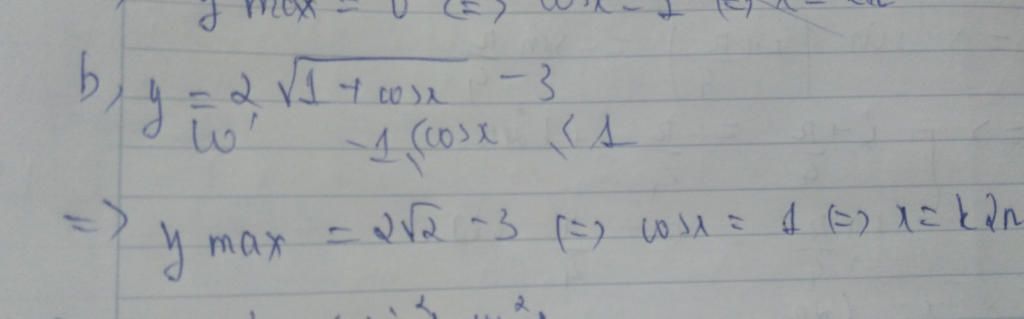 y max = 0 (=) cosx = 1 (=) x =
b, y = 2√1 + cosx - 3
Có -1 ≤ cosx ≤ 1
=> y max = 2√2 - 3 (=) cosx = 1 (=) x = k2π